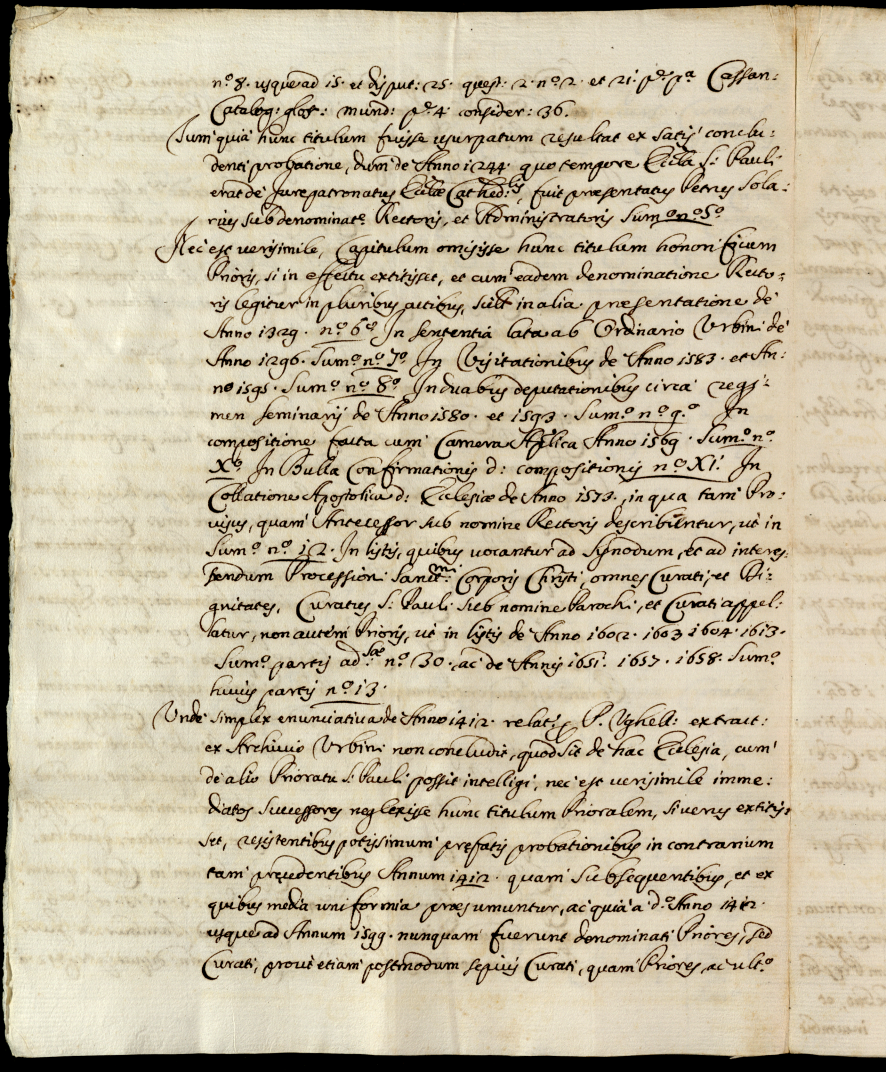 n.º 8. usque ad 15. et disput: 25. quest: 2. n.º 2. et 21. p.e p.a Cassan:
Catalog: glor: mund: p.e 4. consider: 36.
Tum quia hunc titulum fuisse usurpatum resultat ex satis conclu:
denti probatione, dum de Anno 1244. quo tempore Eccl.a S. Pauli
erat de Jurepatronatus Eccl.æ Cathed:lis, fuit præsentatus Petrus Sola:
rius sub denominat.e Rectoris, et Administratoris Sum.º n.º 5.º
Nec est verisimile, Capitulum omisisse hunc titulum honorificum
Prioris, si in effectu extitisset, et cum eadem denominatione Recto:
ris legitur in pluribus actibus, scilt in alia præsentatione de
Anno 1329. n.º 6.º In sententia lata ab Ordinario Urbini de
Anno 1296. Sum.º n.º 7.º In Visitationibus de Anno 1583. et An:
no 1595. Sum.º n.º 8.º In duabus deputationibus circa regi:
men seminarij de Anno 1580. et 1593. Sum.º n.º 9.º In
compositione facta cum Camera Aplica Anno 1569. Sum.º n.º
X.º In Bulla Confirmationis d: compositionis n.º XI. In
Collatione Apostolica d: Ecclesiæ de Anno 1573. in qua tam Pro:
visus, quam Antecessor sub nomine Rectoris describuntur, ut in
Sum.º n.º 12. In listis, quibus vocantur ad Synodum, et ad interes:
sendum Procession: Sanct:mi Corporis Christi, omnes Curati, et Di:
gnitates, Curatus S. Pauli sub nomine Parochi, et Curati appel:
latur, non autem Prioris, ut in listis de Anno 1602. 1603 1604. 1613.
Sum.º partis ad:sæ n.º 30. ac de Annis 1651. 1657. 1658. Sum.º
huius partis n.º 13.
Unde simplex enunciativa de Anno 1412. relat: P. Ughell: extract:
ex Archivio Urbini non concludit, quod sit de hac Ecclesia, cum
de alio Prioratu S. Pauli possit intelligi, nec est verisimile imme:
diatos successores neglexisse hunc titulum Prioralem, si verus extitis:
set, resistentibus potissimum præfatis probationibus in contrarium
tam precedentibus Annum 1412. quam subsequentibus, et ex
quibus media uniformia præsumuntur, ac quia a d.º Anno 1412.
usque ad Annum 1599. nunquam fuerunt denominati Priores, sed
Curati, prout etiam postmodum sepius Curati, quam Priores, ac ult.º